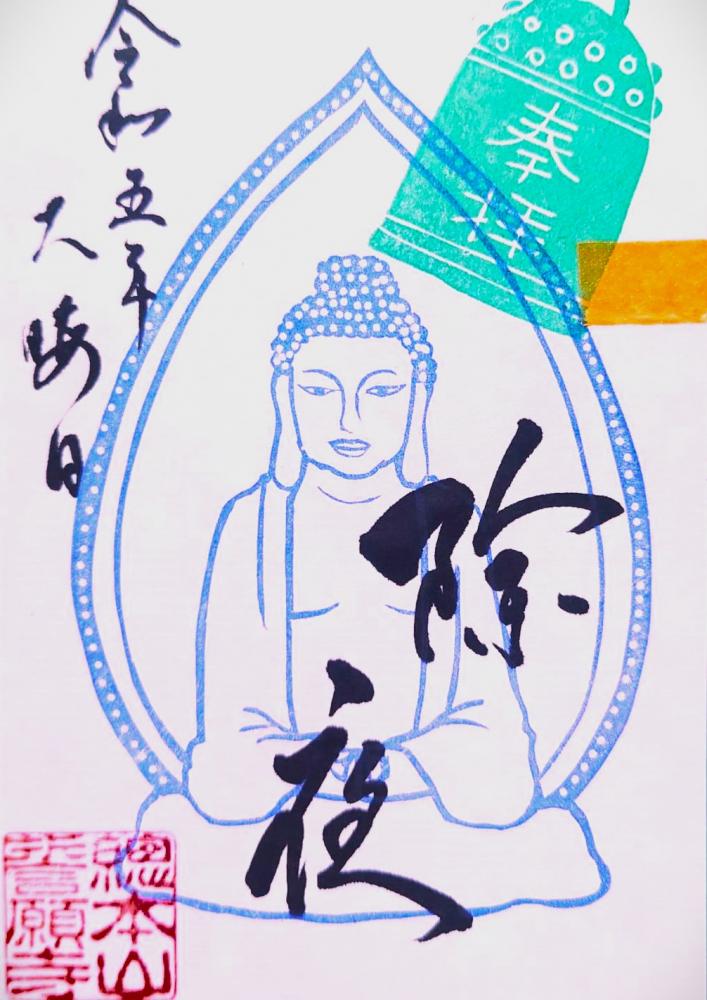 奉拝
除夜
令和五年
大晦日
總本山
誓願寺